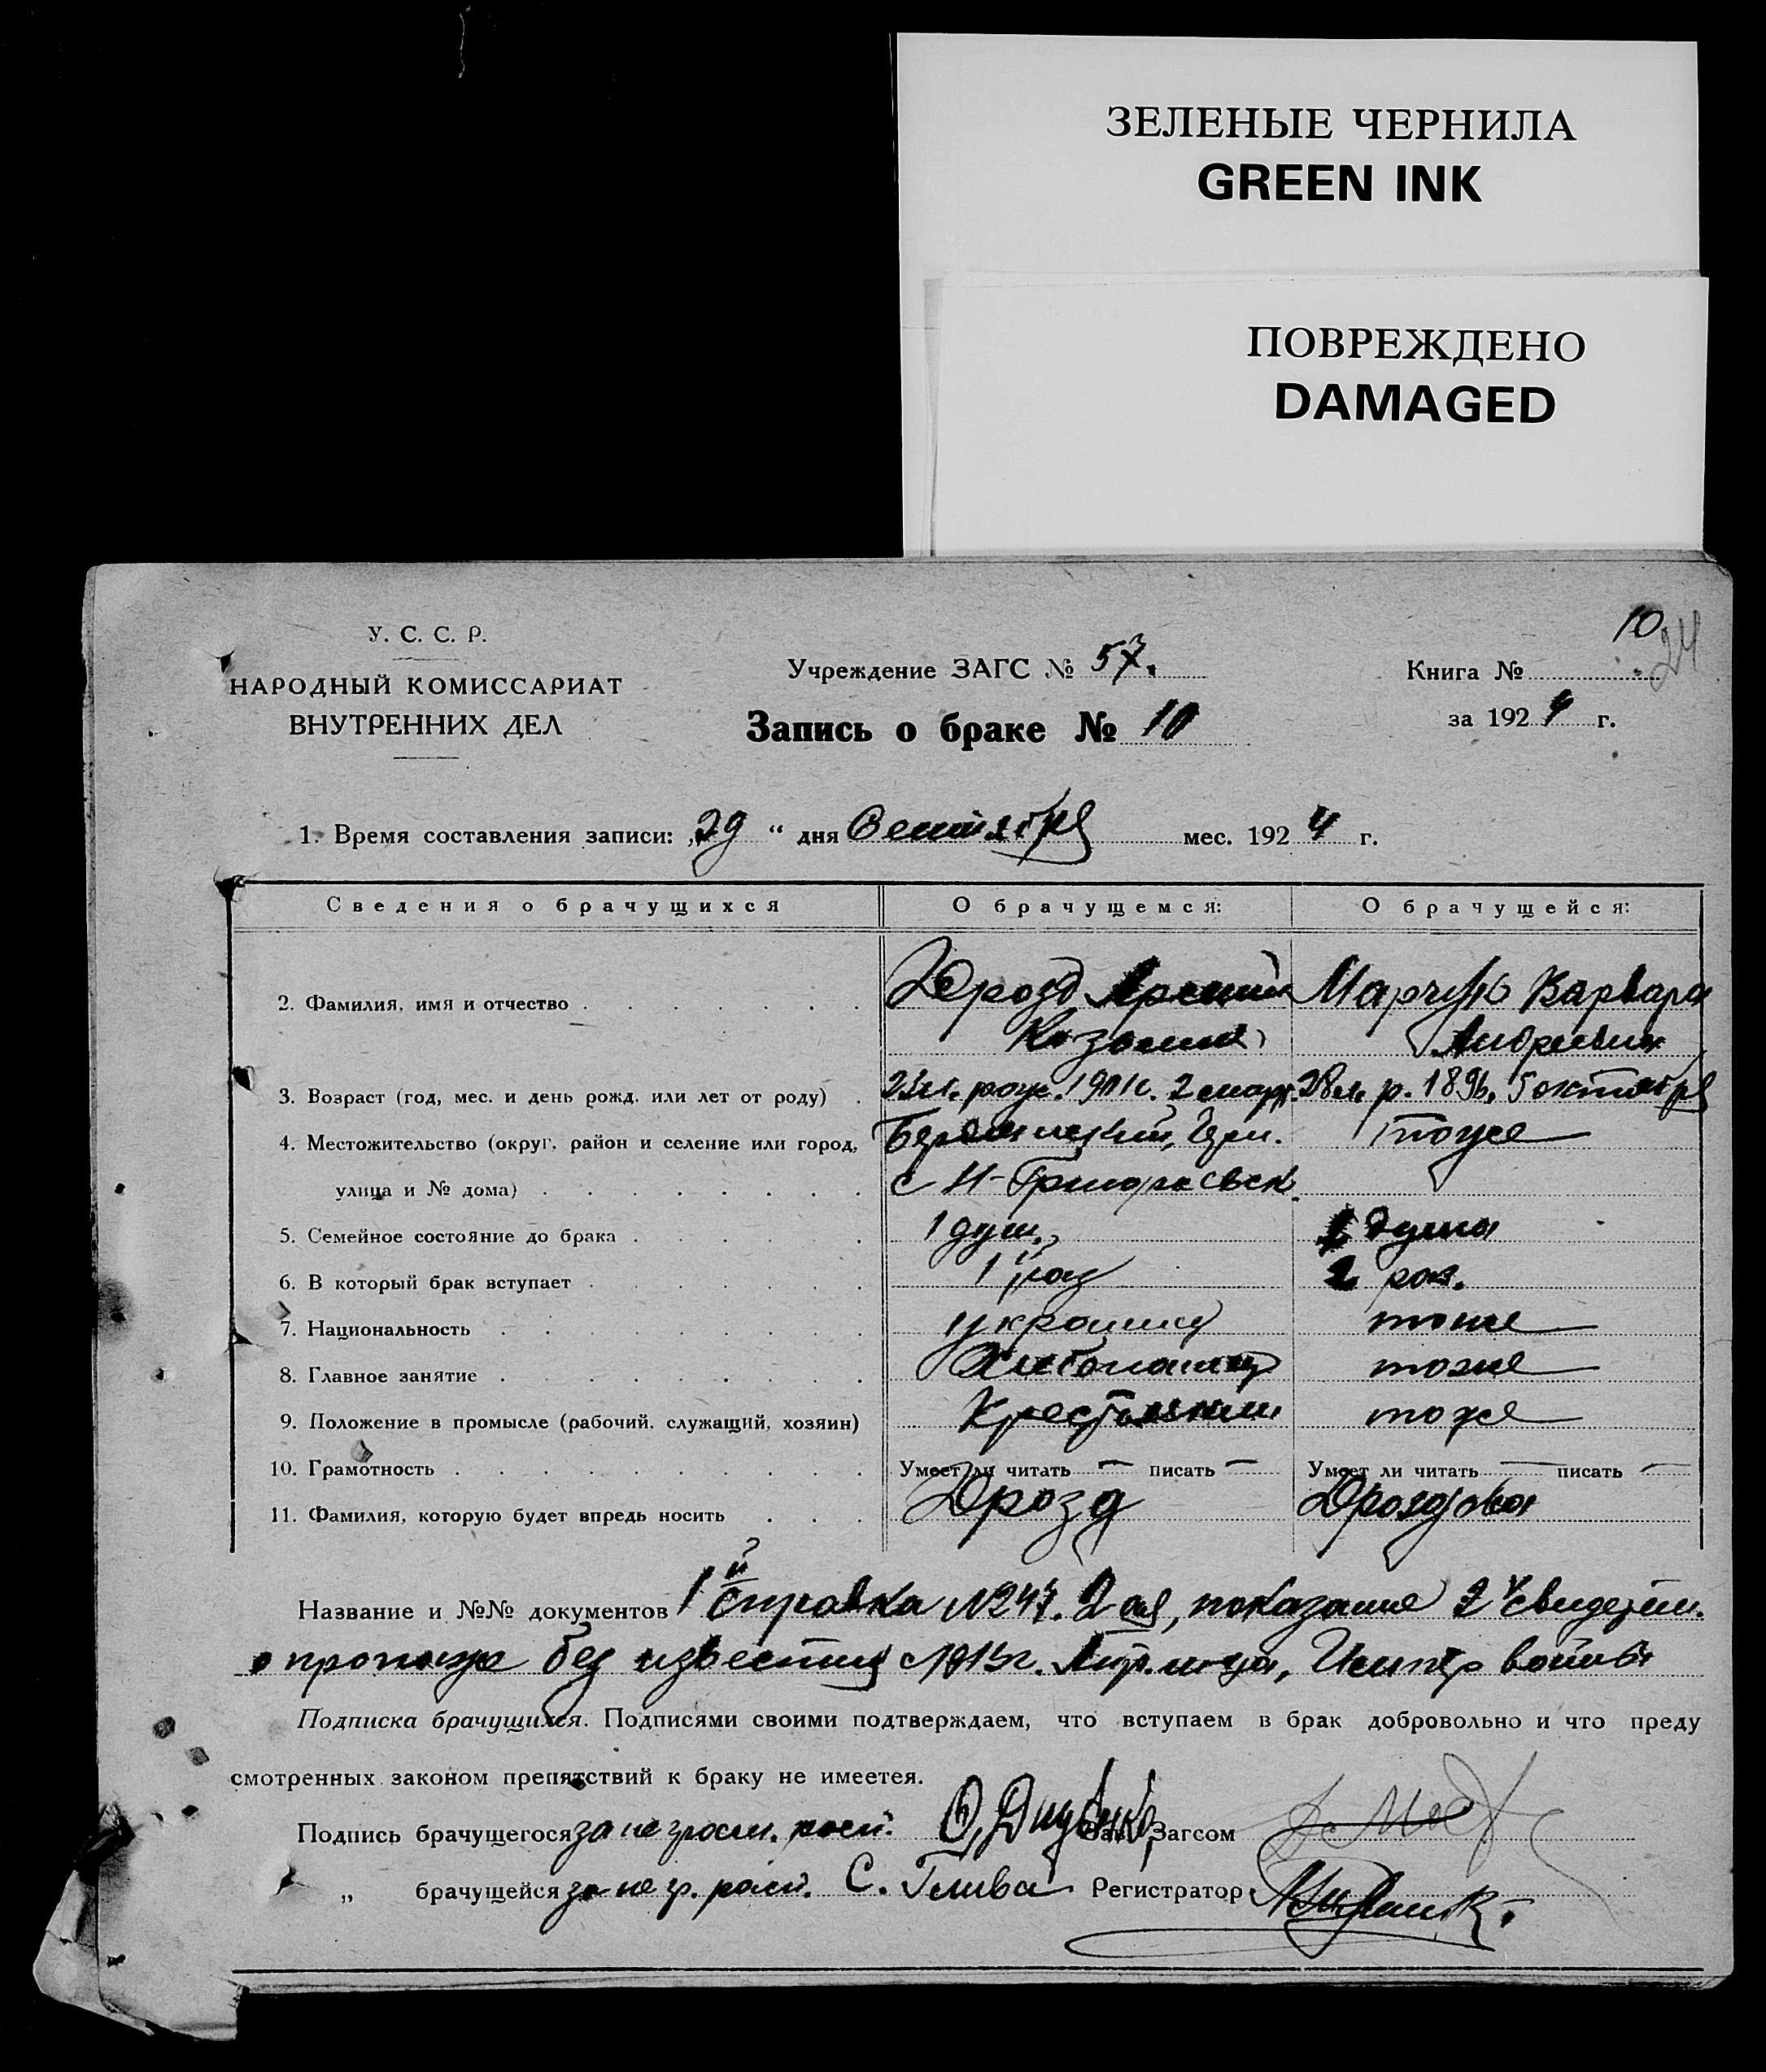 ЗЕЛЕНЫЕ ЧЕРНИЛА
GREEN INK
ПОВРЕЖДЕНО
DAMAGED
10
24
У. С. С. Р.
НАРОДНЫЙ КОМИССАРИАТ
ВНУТРЕННИХ ДЕЛ
Учреждение ЗАГС № 57.
Запись о браке № 10
Книга №
за 1924 г.
1. Время составления записи: „29 “ дня Сентября мес. 1924 г.
Сведения о брачущихся О брачущемся: О брачущейся:
2. Фамилия, имя и отчество Дрозд Варвара
3. Возраст (год, мес. и день рожд. или лет от роду) 23 л. рож. 1901 г. 2 28 л. р. 1896, 5 октября
4. Местожительство (округ, район и селение или город, тоже
улица и № дома) с
5. Семейное состояние до брака 1 душ. душа
6. В который брак вступает 1 раз 2 раз.
7. Национальность украинец тоже
8. Главное занятие тоже
9. Положение в промысле (рабочий, служащий, хозяин) тоже
10. Грамотность Умеет ли читать — писать — Умеет ли читать — писать —
11. Фамилия, которую будет впредь носить Дрозд Дроздова
Название и №№ документов 1 Справка № 247. 2 ая, показание 2х свидетел.
о пропаже без известия с войны
Подписка брачущихся. Подписями своими подтверждаем, что вступаем в брак добровольно и что преду
смотренных законом препятствий к браку не имеетея.
Подпись брачущегося за не Зав. Загсом
„ брачущейся за не гр. С. Глива Регистратор